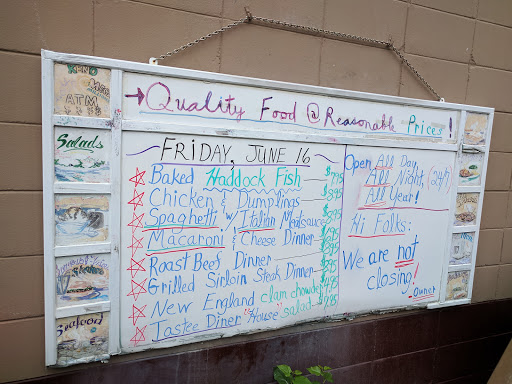 →Quality Food @ Reasonable Prices!
FRIDAY, JUNE 16
Baked Haddock Fish
Chicken & Dumplings
Spaghetti w/ Italian Meatsauce
Macaroni & Cheese Dinner
Roast Beef Dinner
Grilled Sirloin Steak Dinner
New England clam chowder
Tastee Diner "House" salad
Open All Day,
All Night (24/7)
All Year!
Hi Folks:
We are not
closing!
Owner
ATM
Salads
Seafood